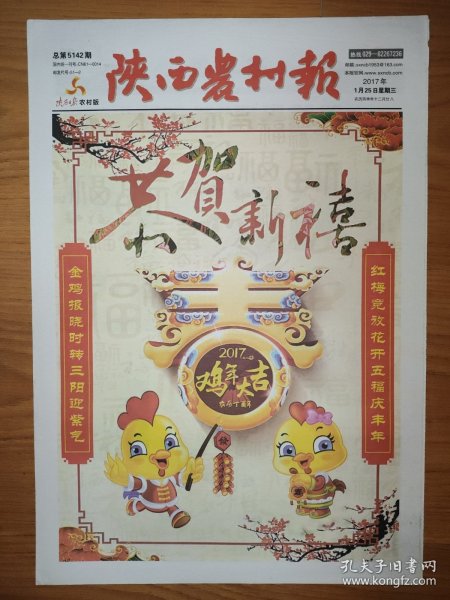 总第5142期
国内统一刊号:CN61-0014
邮发代号:51-8
陕西日报 农村版
陕西农村報
热线 029-82267236
邮箱:sxncb1953@163.com
本报官网:www.sxncb.com
2017年
1月25日星期三
农历丙申年十二月廿八
恭賀新禧
金鸡报晓时转三阳迎紫气
红梅竞放花开五福庆丰年
春
2017
鸡年大吉
农历丁酉年
孔夫子旧书网
www.kongfz.com